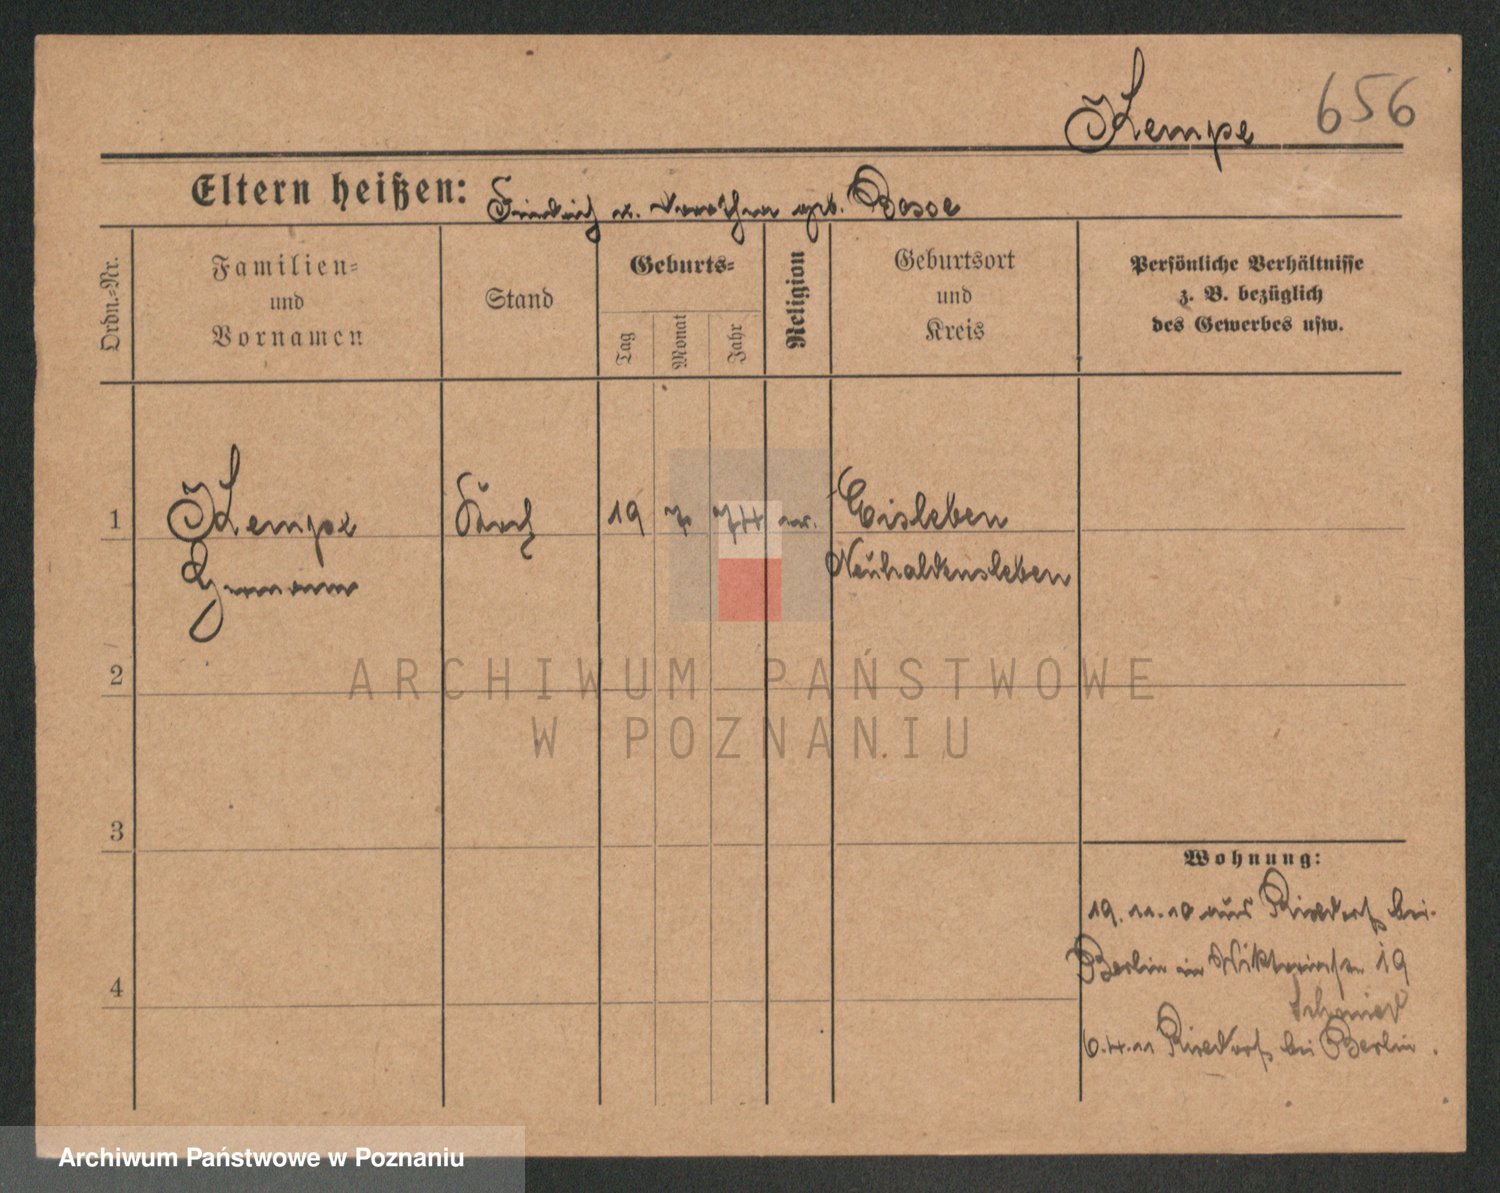 Kempe 656
Eltern heißen: Friedrich u. Dorothea geb. Bosse
Ordn.-Nr.
Familien-
und
Vornamen
Stand
Geburts-
Tag
Monat
Jahr
Religion
Geburtsort
und
Kreis
Persönliche Verhältnisse
z. B. bezüglich
des Gewerbes usw.
1 Kempe 19 7. 74 ev. Eisleben
Hermann Neuhaldensleben
2
3
4
Wohnung:
19.11.10 aus Rixdorf bei
Berlin in Viktoriastr. 19
Schmied
6.4.11 Rixdorf bei Berlin.
ARCHIWUM PAŃSTWOWE
W POZNANIU
Archiwum Państwowe w Poznaniu